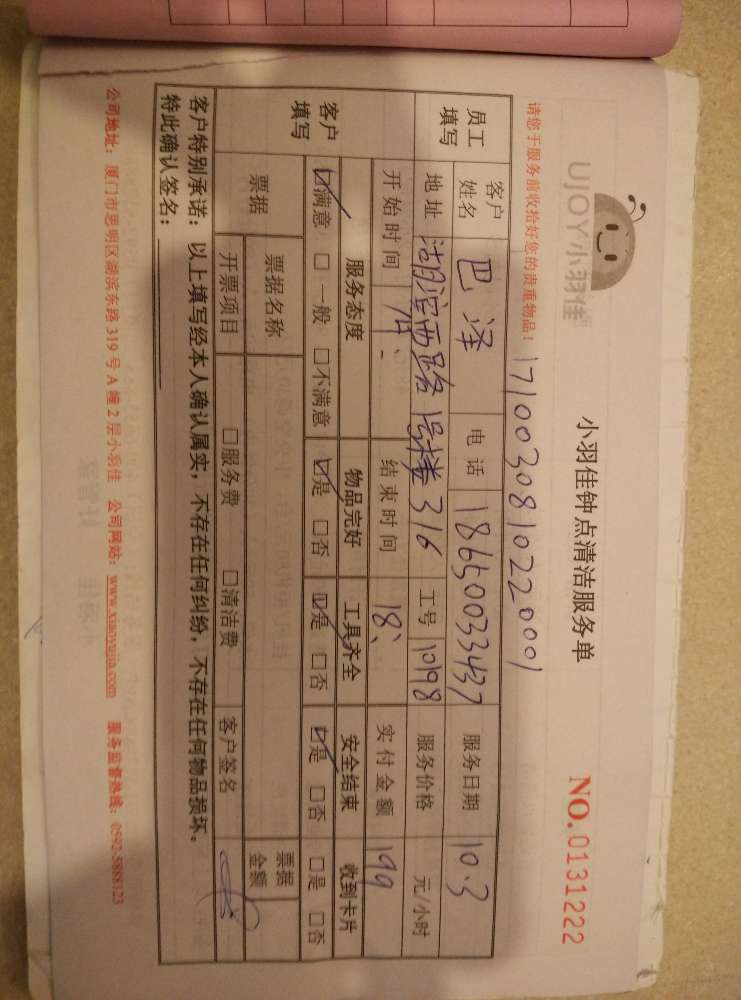 UJOY小羽佳
小羽佳钟点清洁服务单
NO. 0131222
请您于服务前收拾好您的贵重物品!
17100308102200 01
员工填写 客户姓名 巴泽 电话 18650033437 服务日期 10.3
地址 湖滨西路 号楼316 工号 10198 服务价格 元/小时
开始时间 结束时间 18: 实付金额 199
客户填写 服务态度 物品完好 工具齐全 安全结束 收到卡片
☑满意 □一般 □不满意 ☑是 □否 ☑是 □否 ☑是 □否 □是 □否
票据 票据名称 票据金额
开票项目 □服务费 □清洁费 客户签名
客户特别承诺:以上填写经本人确认属实,不存在任何纠纷,不存在任何物品损坏。
特此确认签名:
公司地址:厦门市思明区湖滨东路319号A幢2层小羽佳 公司网站:www.xiaoyujia.com 服务监督热线:0592-5888123